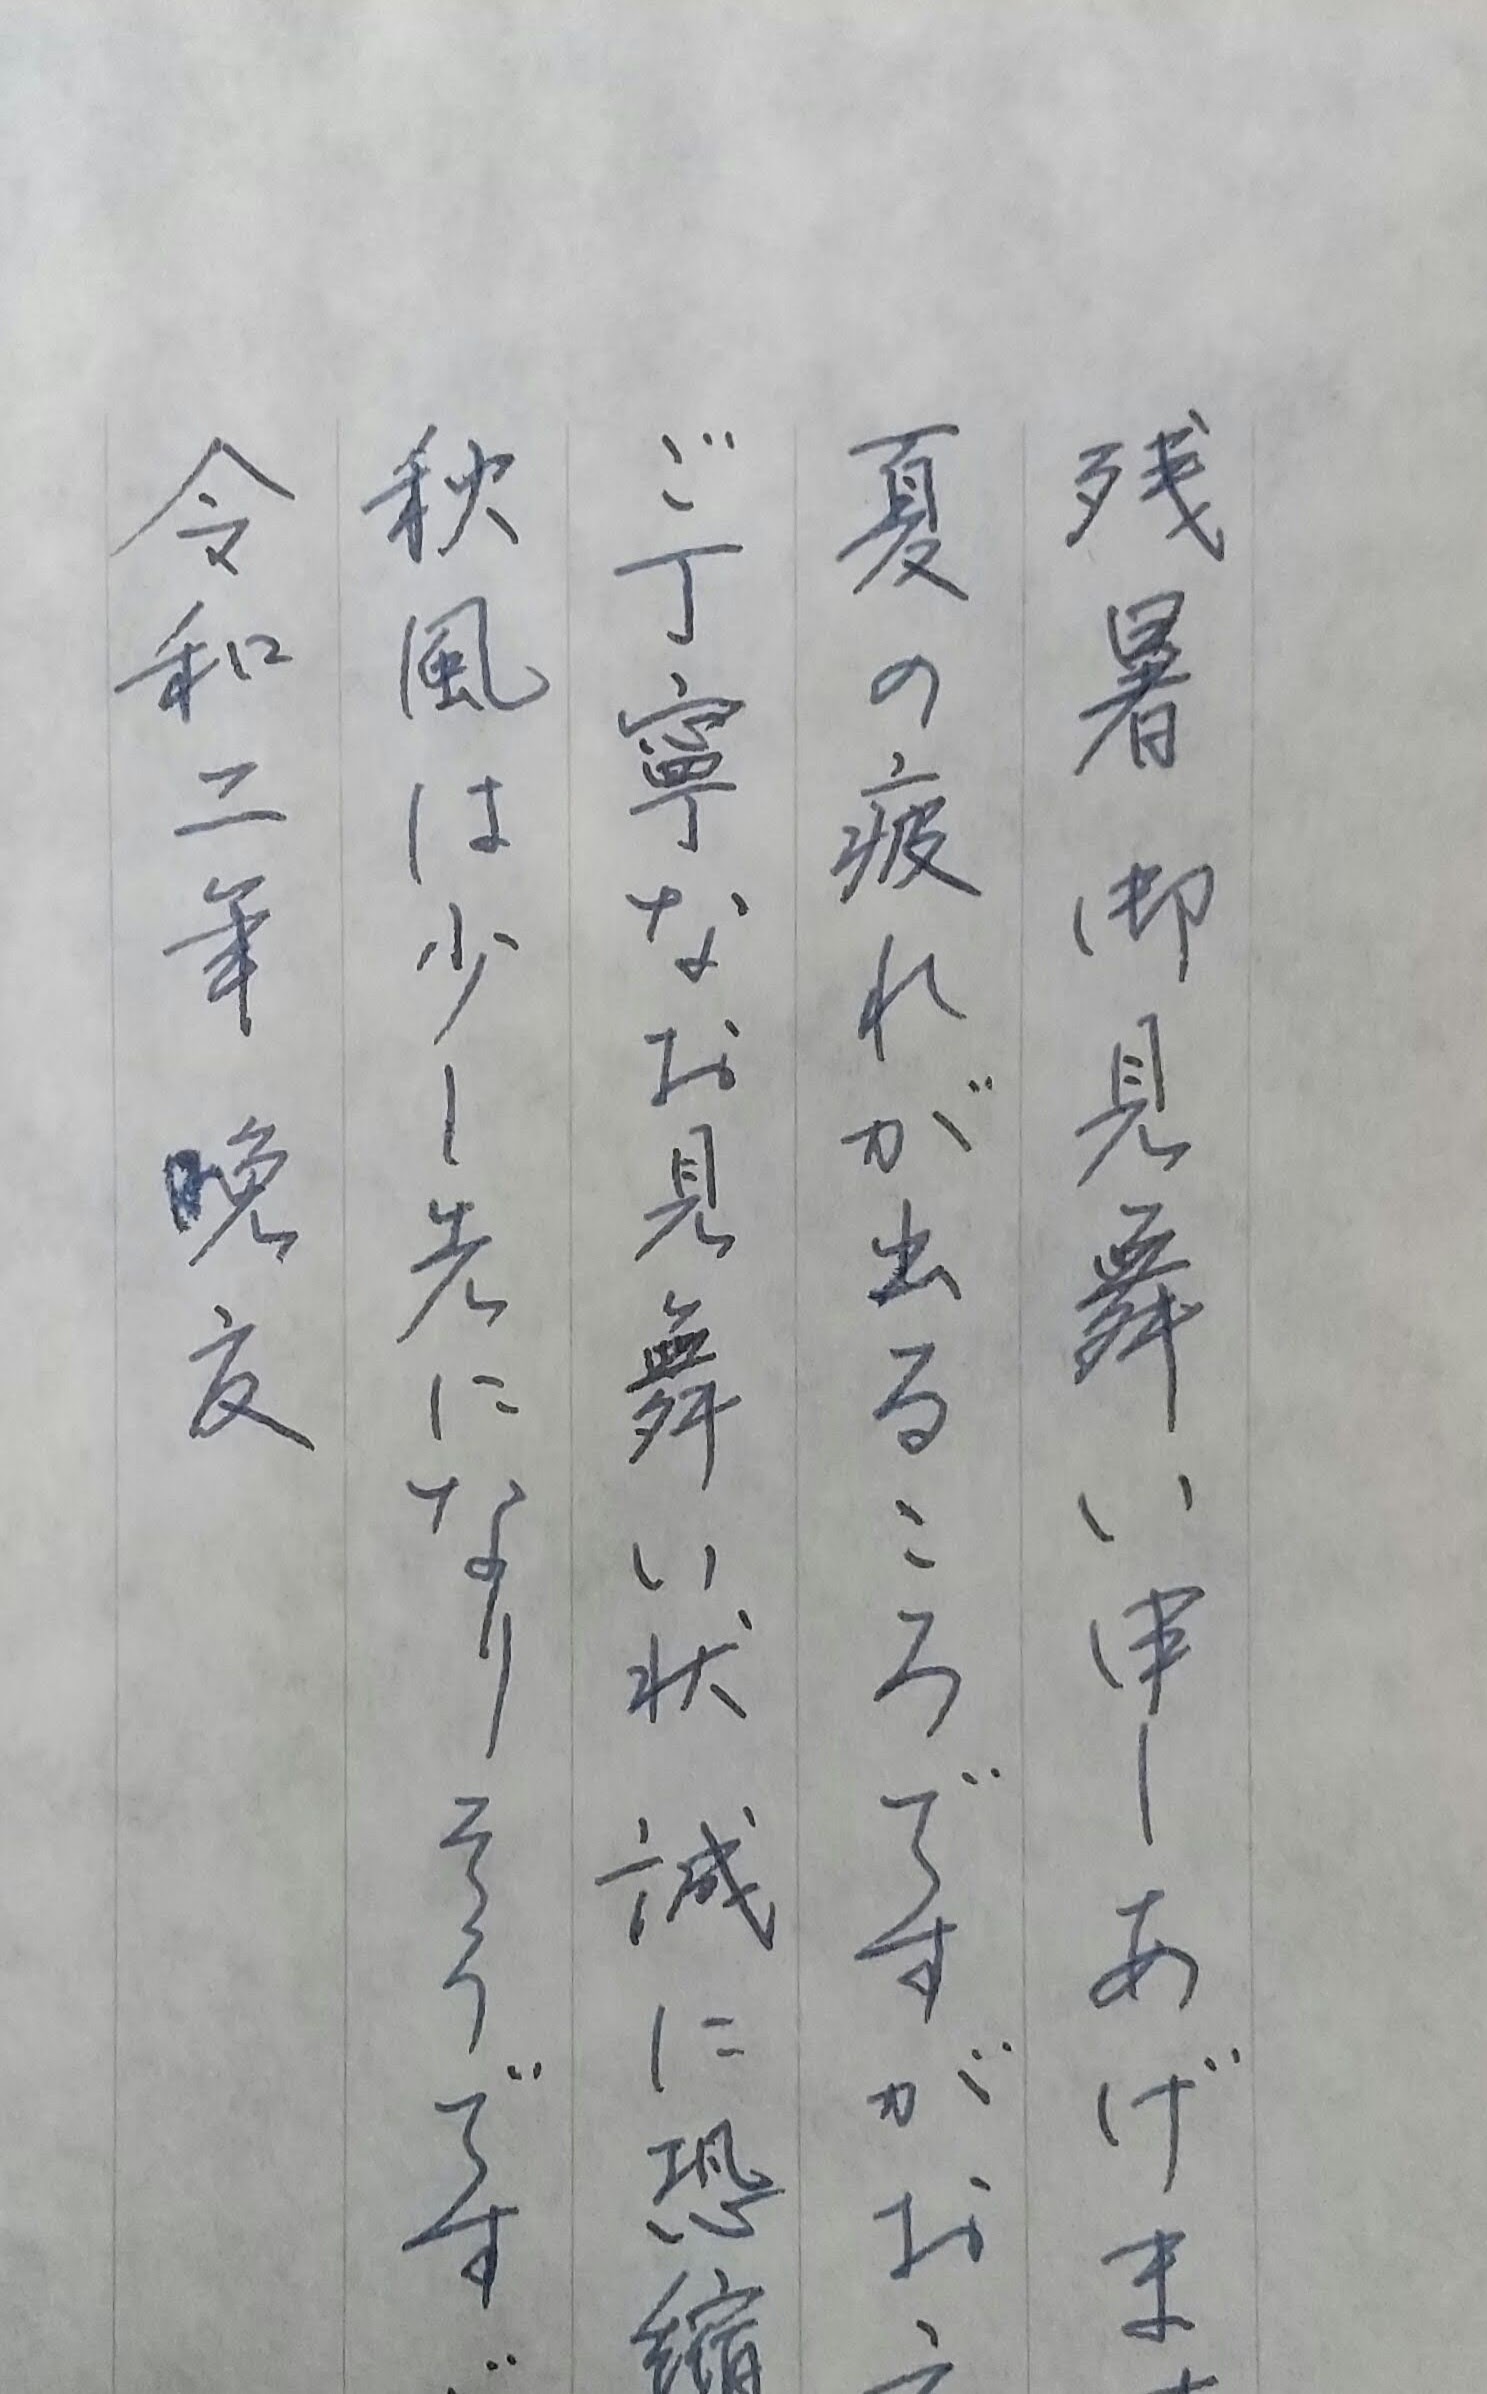 残暑御見舞い申しあげま
夏の疲れが出るころですがお
ご丁寧なお見舞い状 誠に恐縮
秋風は少し先になりそうです
令和二年 晩夏